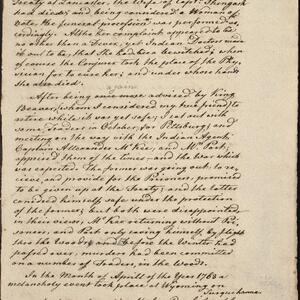 Treaty at Lancaster, the Wife of Capt.
had died; and being considered a Woman of
Note, the funeral procession was performed ac-
cordingly. Altho' her complaint appeared to be
no other than a Fever, yet Indian Doctors made
it out to be, that She had been bewitched; when
of course the Conjuror took the place of the Phy-
sician for to cure her; and under whose hands
She also died.
again
After being once more advised by King
Beaver, whom I considered my true friend, to
retire while it was yet safe; I set out with
some Traders in October, for Pittsburg; and
meeting on the way with the Indian Agent,
Captain Allexander Mc Kee, and Mr.
apprised them of the times—and the War which
was expected. The former was going out to re-
ceive and provide for the Prisoners, promised
to be given up at the Treaty; and the latter
considered himself safe under the protection
of the former; but both were disappointed
in their views, Mc Kee returning without Pri-
soners, and Post only saving himself by flight
thro' the Woods; and before the Winter had
passed over, murders had been committed
on a number of Traders, in the Woods.
In the Month of Aprill of the Year 1763 a
melancholy event took place at Wyoming on
Susquehanna